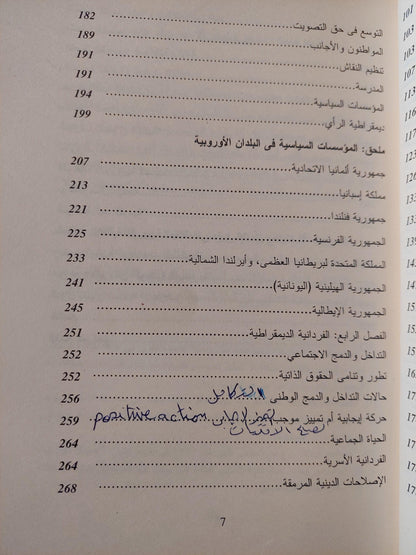 التوسع فى حق التصويت 182
المواطنون والأجانب 189
تنظيم النقاش 191
المدرسة 191
المؤسسات السياسية 194
ديمقراطية الرأي 199
ملحق: المؤسسات السياسية فى البلدان الأوروبية
جمهورية ألمانيا الاتحادية 207
مملكة إسبانيا 213
جمهورية فنلندا 221
الجمهورية الفرنسية 225
المملكة المتحدة لبريطانيا العظمى، وأيرلندا الشمالية 233
الجمهورية الهيلينية (اليونانية) 241
الجمهورية الإيطالية 245
الفصل الرابع: الفردانية الديمقراطية 251
التداخل والدمج الاجتماعي 252
تطور وتنامى الحقوق الذاتية 252
حالات التداخل والدمج الوطنى 256
حركة إيجابية أم تمييز موجب positive action 259
الحياة الجماعية 264
الفردانية الأسرية 264
الإصلاحات الدينية المرمقة 268
7